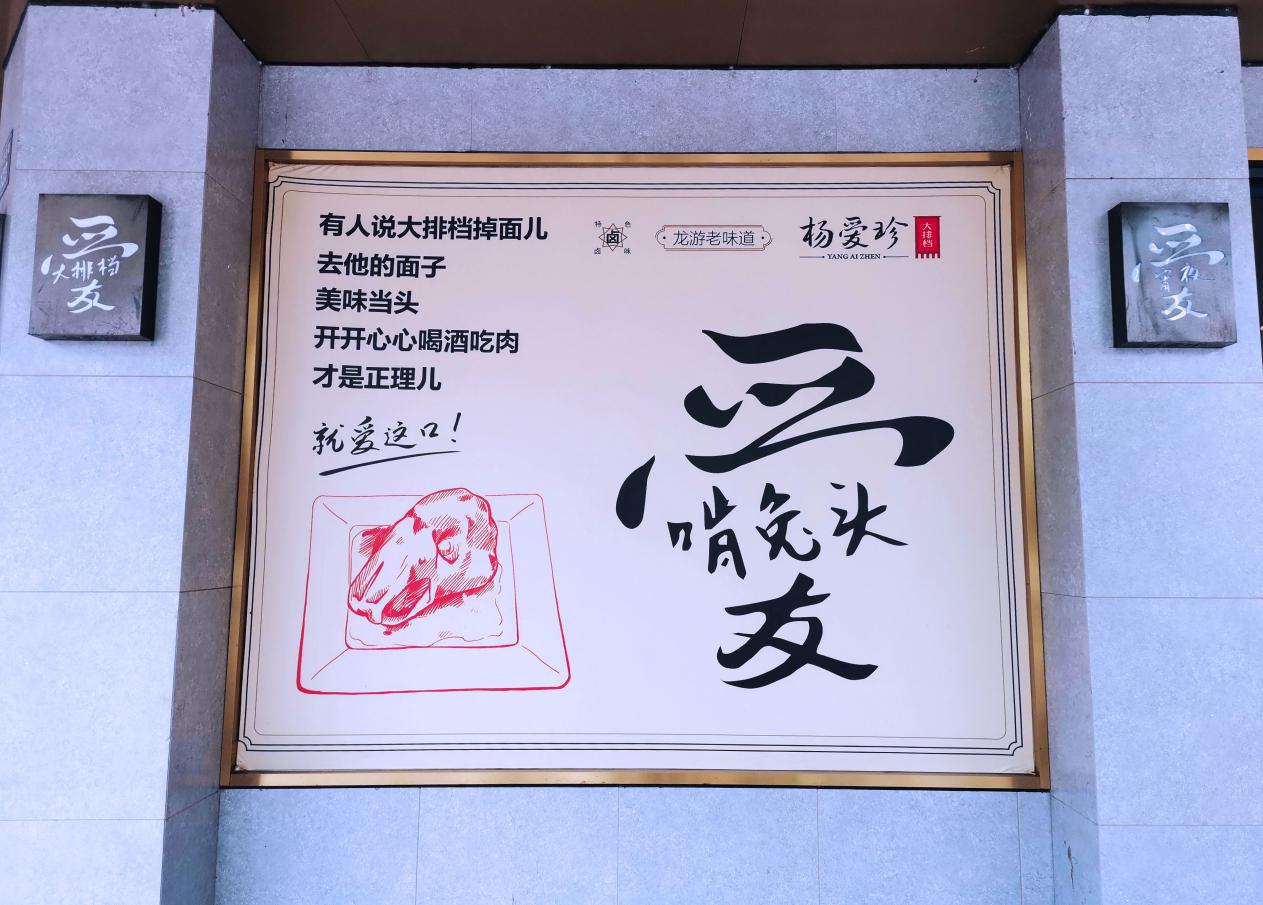 有人说大排档掉面儿
去他的面子
美味当头
开开心心喝酒吃肉
才是正理儿
就爱这口！
特色
卤
卤味
龙游老味道
杨爱珍
YANG AI ZHEN
大排档
爱
啃兔头
爱
大排档
爱
宵夜